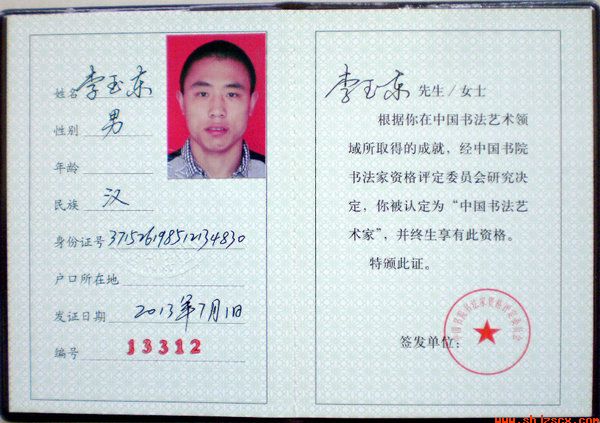 姓名 李玉东
性别 男
年龄
民族 汉
身份证号 371526198512134830
户口所在地
发证日期 2013年7月1日
编号 13312
李玉东 先生/女士
根据你在中国书法艺术领
域所取得的成就，经中国书院
书法家资格评定委员会研究决
定，你被认定为“中国书法艺
术家”，并终生享有此资格。
特颁此证。
签发单位：
中国书院书法家资格评定委员会
www.shjzscx.com